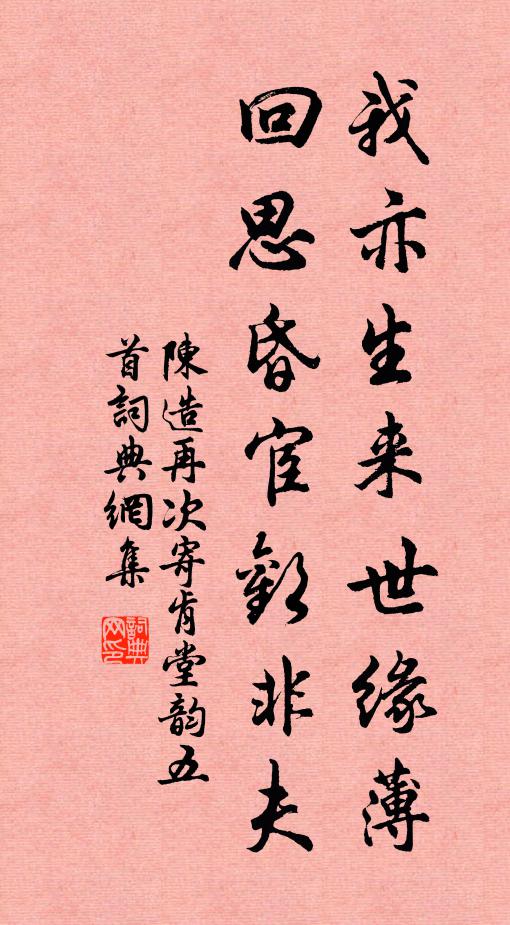 我亦生来世緣薄
回思昏宦歎非夫
陳造再次寄肯堂韵五
首詞典網集
詞典
网印